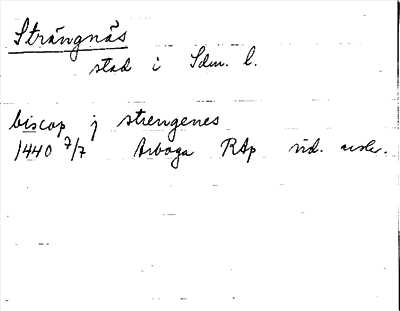 Strängnäs
stad i Sdm. l.
biscop j strengenes
1440 7/7 Arboga RAp vid. avskr.